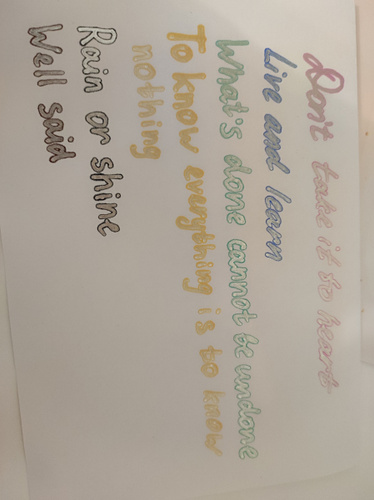 Don't take it to heart
Live and learn
What's done cannot be undone
To know everything is to know
nothing
Rain or shine
Well said